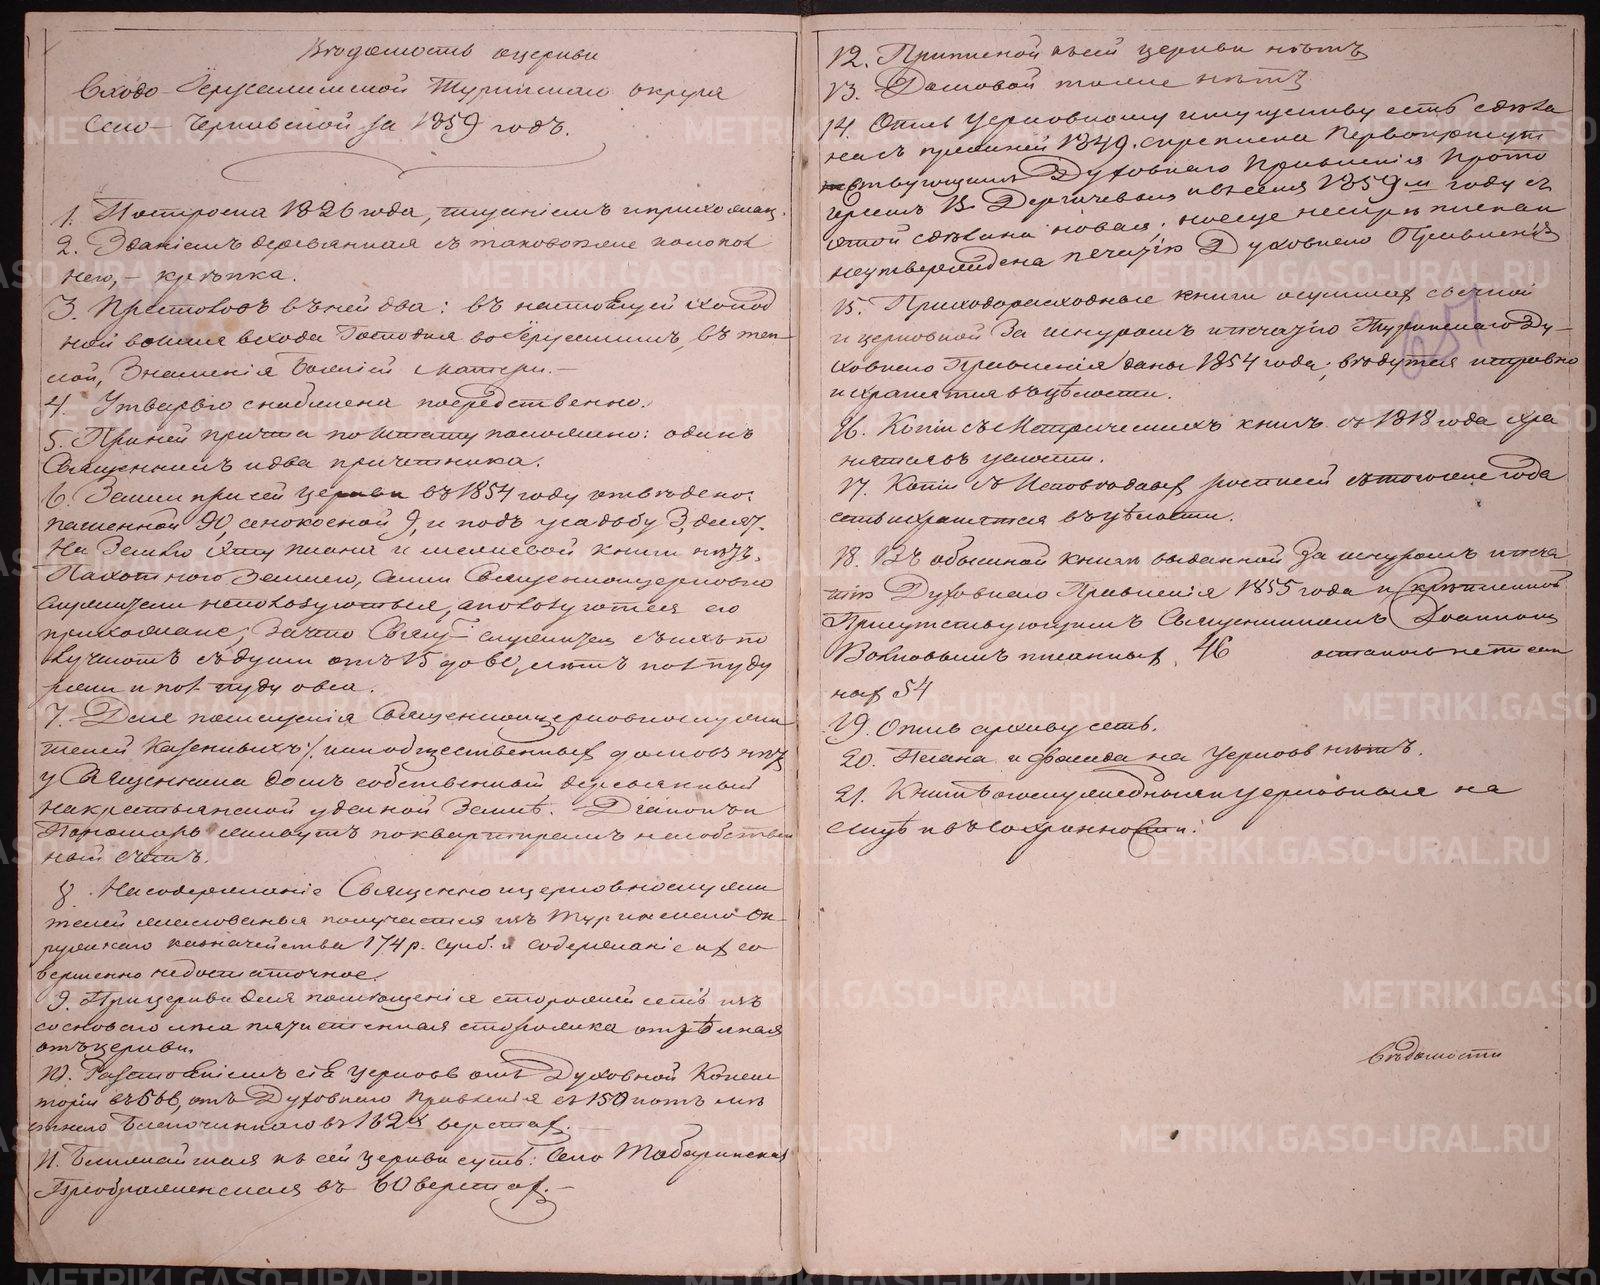 Вѣдомость о церкви
Входо-Іерусалимской Туринскаго округа
Село-Чернавской за 1859 годъ.
1. Построена 1826 года, тщаніемъ прихожан.
2. Зданіемъ деревянная съ таковою же колокол
нею, – крѣпка.
3. Престоловъ въ ней два: въ настоящей холод
ной во имя входа Господня во Іерусалимъ, въ теп-
лой, Знаменія Божіей Матери. –
4. Утварью снабжена посредственно.
5. При ней причта по Штату положено: одинъ
Священникъ и два причетника.
6. Земли при сей церкви въ 1854 году отведено:
пашенной 90, сенокосной 9, и подъ усадьбу 3, десят.
На Землю эту плана и межевой книги нѣтъ.
Пахотною Землею, сами Священноцерковно
служители непользуються, а пользуются ею
прихожане; За что Свящ. служители съ нихъ по
лучаютъ съ души отъ 15 до 60, летъ по 1 пуду
ржи и по 1 пуду овса.
7. Для помещенія Священноицерковнослужи
телей Казенныхъ и общественныхъ домовъ нѣтъ
у Священника домъ собственный деревянный
на крестьянской удельной Землѣ. Діаконъ и
Пономарь живутъ по квартирамъ на собствен
ный счетъ.
8. На содержаніе Священно и церковнослужи
телей жалованья получается изъ Туринскаго Ок-
ружнаго казначейства 174 р. сереб. и содержаніе ихъ со
вершенно недостаточное.
9. При церкви для помѣщенія сторожей есть изъ
сосноваго лѣса пятистенная сторожка отдѣльная
отъ церкви.
10. Разстояніемъ сія церковь отъ Духовной Консис
торіи въ 566, отъ Духовнаго Правленія въ 150 и отъ мѣ
стнаго Благочиннаго въ 162х верстах. –
11. Ближайшая къ сей церкви суть: Село Табаринская
Преображенская въ 60 верстах. –
12. Приписной к сей церкви нѣтъ
13. Домовой также нѣтъ
14. Опись церковному имуществу есть сдѣла
на съ прежней 1849. скреплена Первоприсут
ствующимъ Духовнаго Правленія Прото
іереемъ В. Дергачевым и въ семъ 1859 м году съ
этой сдѣлана новая; но еще не скрѣплена и
неутверждена печатію Духовнаго Правленія
15. Приходорасходные книги о суммах свечной
и церковной За шнуромъ и печатію Туринскаго Ду-
ховнаго Правленія даны 1854 года; ведутся исправно
и хранятся въ цѣлости.
16. Копіи съ Метрическихъ книгъ съ 1818 года хра
нятся въ целости.
17. Копіи съ Исповѣдных росписей съ того же года
есть и хранятся въ цѣлости.
18. Въ обыскной книгѣ выданной За шнуромъ и печа
тію Духовнаго Правленія 1855 года и скрѣпленной
Присутствующимъ Священникомъ Іоанном
Волковымъ писанных 46 осталось не писан
ных 54
19. Опись архиву есть.
20. Плана и фасада на церковь нѣтъ.
21. Книгѣ богослужебныя и церковныя на
лицѣ и въ сохранности.
651
вѣдомости
METRIKI.GASO-URAL.RU